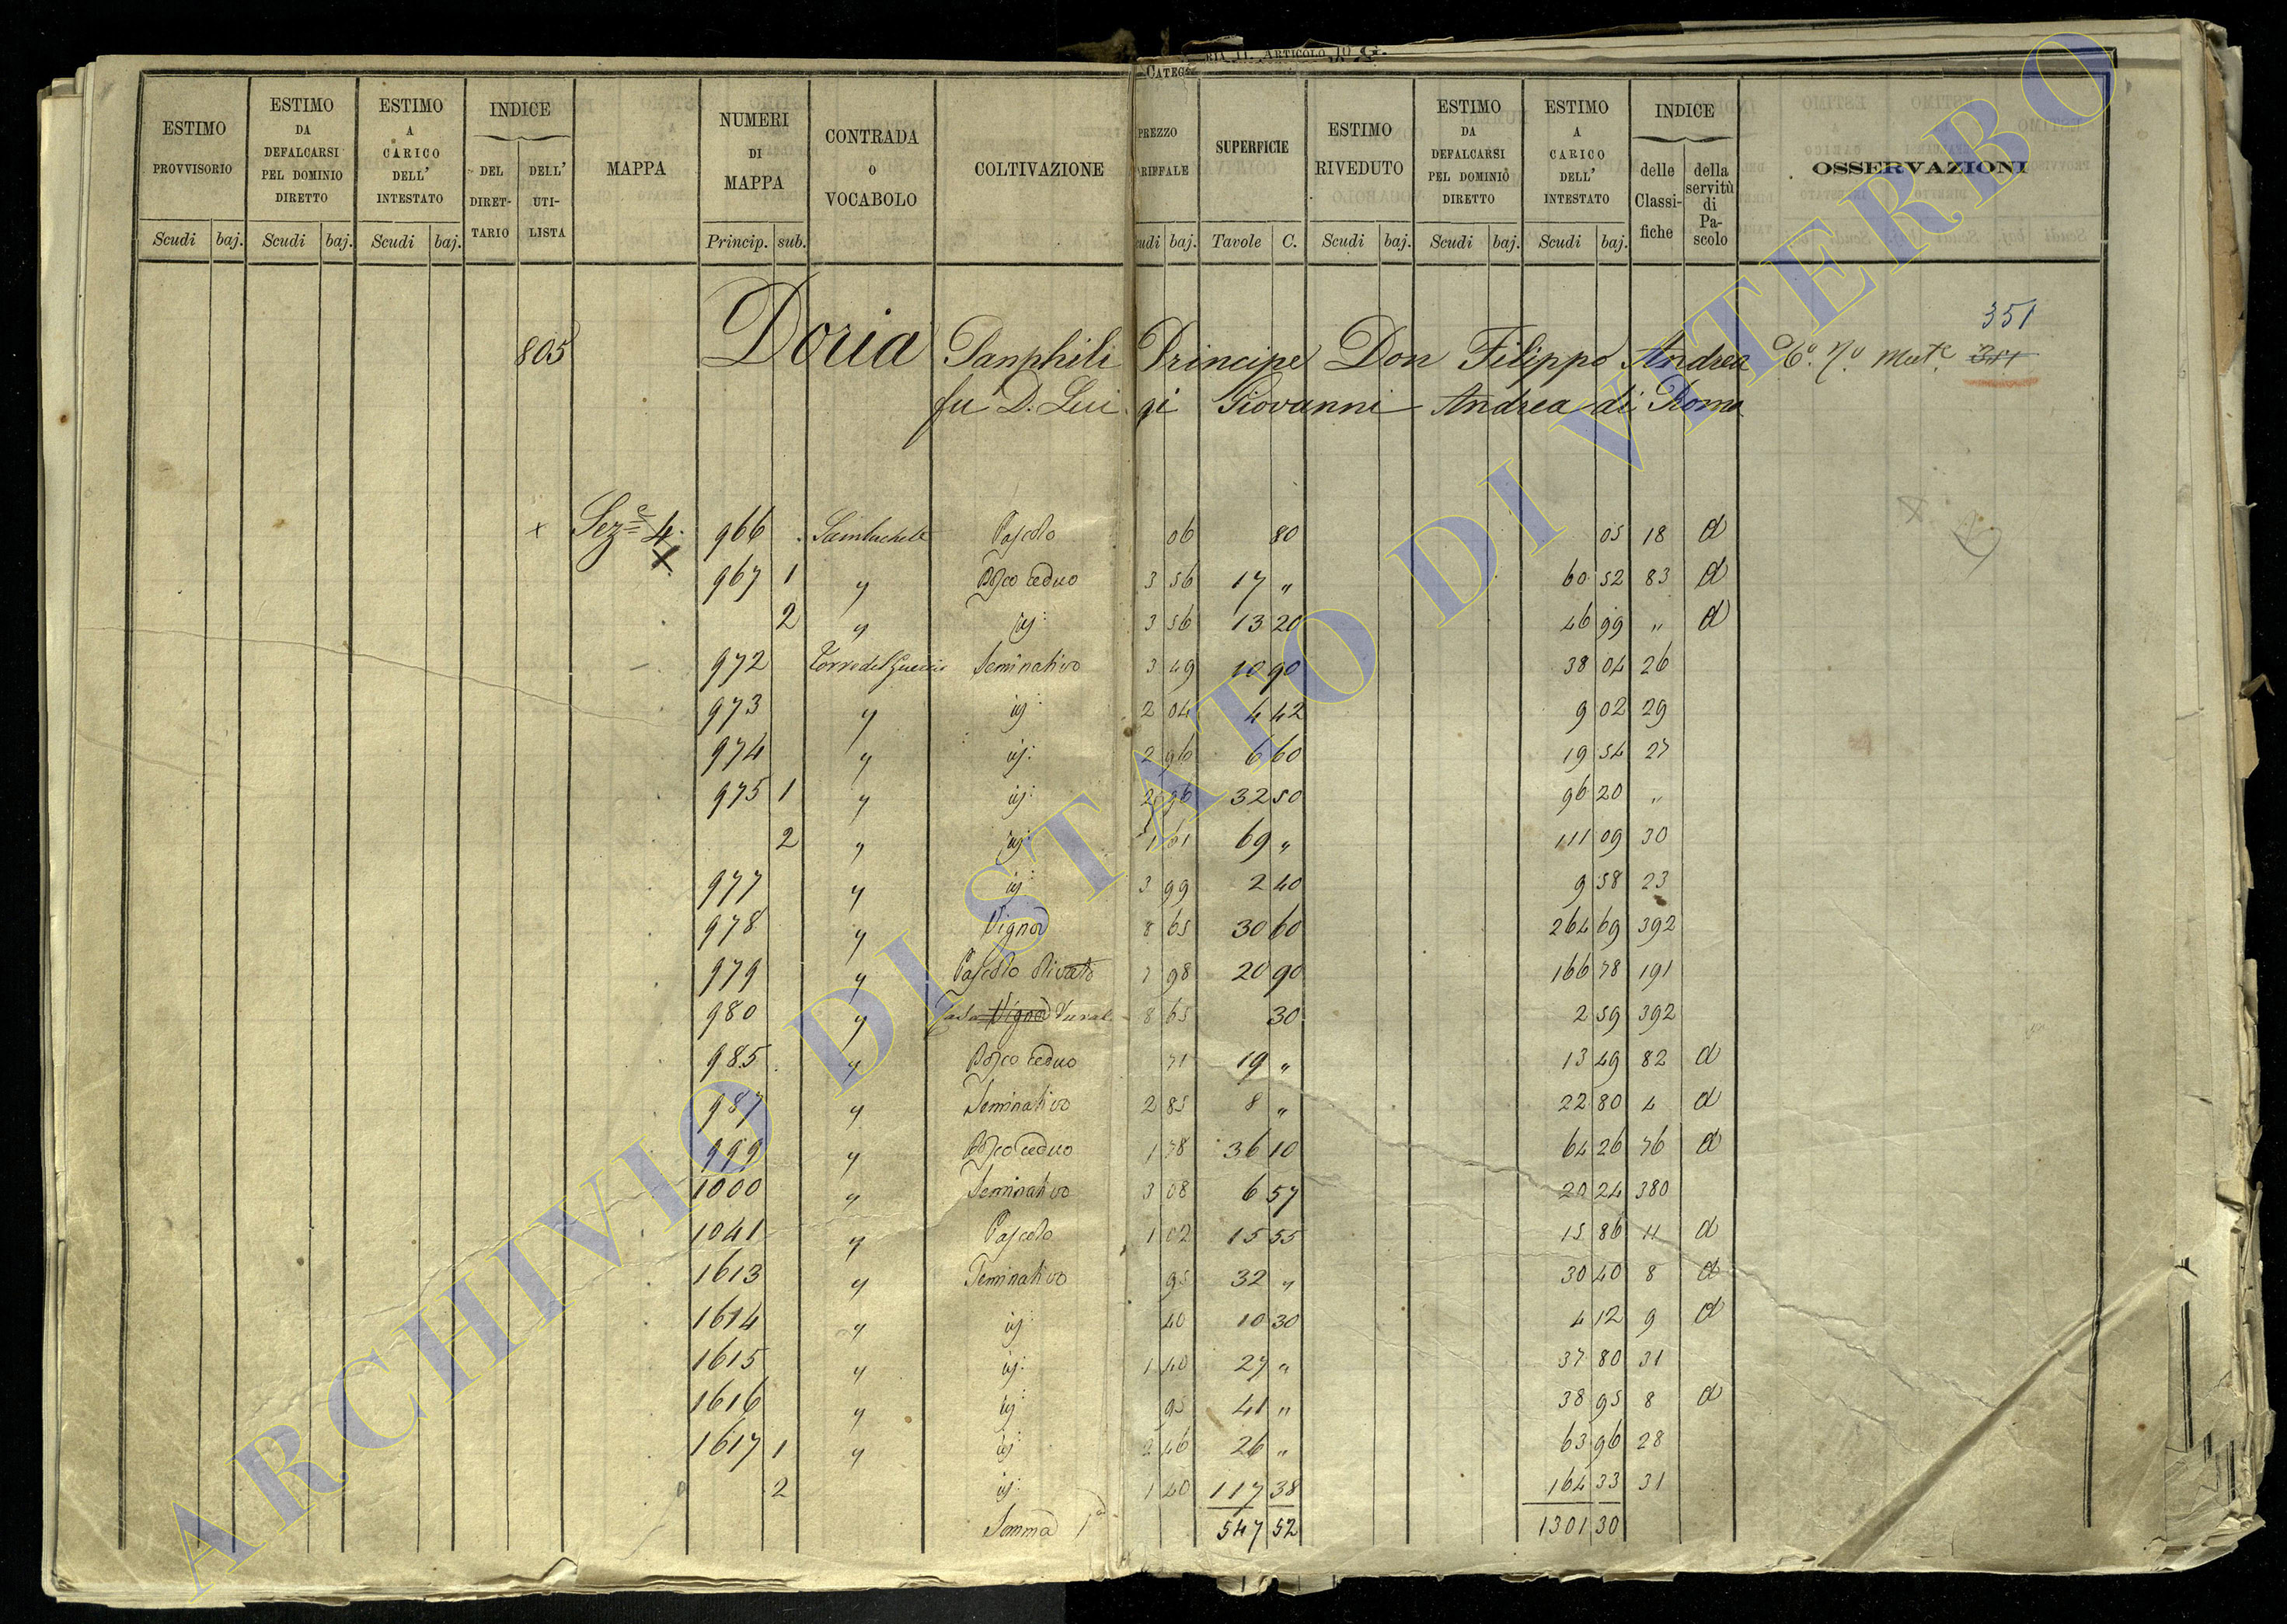 CATEG RIA II. ARTICOLO 10 G.
ESTIMO PROVVISORIO | ESTIMO DA DEFALCARSI PEL DOMINIO DIRETTO | ESTIMO A CARICO DELL' INTESTATO | INDICE DEL DIRET-TARIO | DELL' UTI-LISTA | MAPPA | NUMERI DI MAPPA | CONTRADA O VOCABOLO | COLTIVAZIONE | PREZZO RIFFALE | SUPERFICIE | ESTIMO RIVEDUTO | ESTIMO DA DEFALCARSI PEL DOMINIO DIRETTO | ESTIMO A CARICO DELL' INTESTATO | INDICE delle Classi-fiche | della servitù di Pa-scolo | OSSERVAZIONI
Scudi baj. Scudi baj. Scudi baj. Princip. sub. udi baj. Tavole C. Scudi baj. Scudi baj. Scudi baj.
351
805 Doria Panphili Principe Don Filippo Andrea
fu D. Luigi Giovanni Andrea di Roma
x Sez.e 4. 966 Pascolo 06 80 05 18 d
967 1 " Bosco ceduo 3 56 17 " 60 52 83 d
2 " id: 3 56 13 20 46 99 " d
972 Seminativo 3 49 10 90 38 04 26
973 " id: 2 04 4 42 9 02 29
974 " id: 2 96 6 60 19 54 27
975 1 " id: 2 96 32 50 96 20 "
2 " id: 1 61 69 " 111 09 30
977 " id: 3 99 2 40 9 58 23
978 " Vigna 8 65 30 60 264 69 392
979 " Pascolo olivato 7 98 20 90 166 78 191
980 " Casa Vigna Rurale 8 65 30 2 59 392
985 " Bosco ceduo 71 19 " 13 49 82 d
987 " Seminativo 2 85 8 " 22 80 4 d
999 " Bosco ceduo 1 78 36 10 64 26 76 d
1000 " Seminativo 3 08 6 57 20 24 380
1041 " Pascolo 1 02 15 55 15 86 11 d
1613 " Seminativo 95 32 " 30 40 8 d
1614 " id: 40 10 30 4 12 9 d
1615 " id: 1 40 27 " 37 80 31
1616 " id: 95 41 " 38 95 8 d
1617 1 " id: 2 46 26 " 63 96 28
2 id: 1 40 117 38 164 33 31
Somma 1a 547 52 1301 30
ARCHIVIO DI STATO DI VITERBO